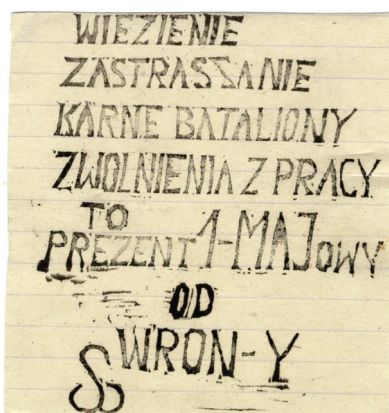 WIEZIENIE
ZASTRASZANIE
KARNE BATALIONY
ZWOLNIENIA Z PRACY
TO
PREZENT 1-MAJOWY
OD
WRON-Y